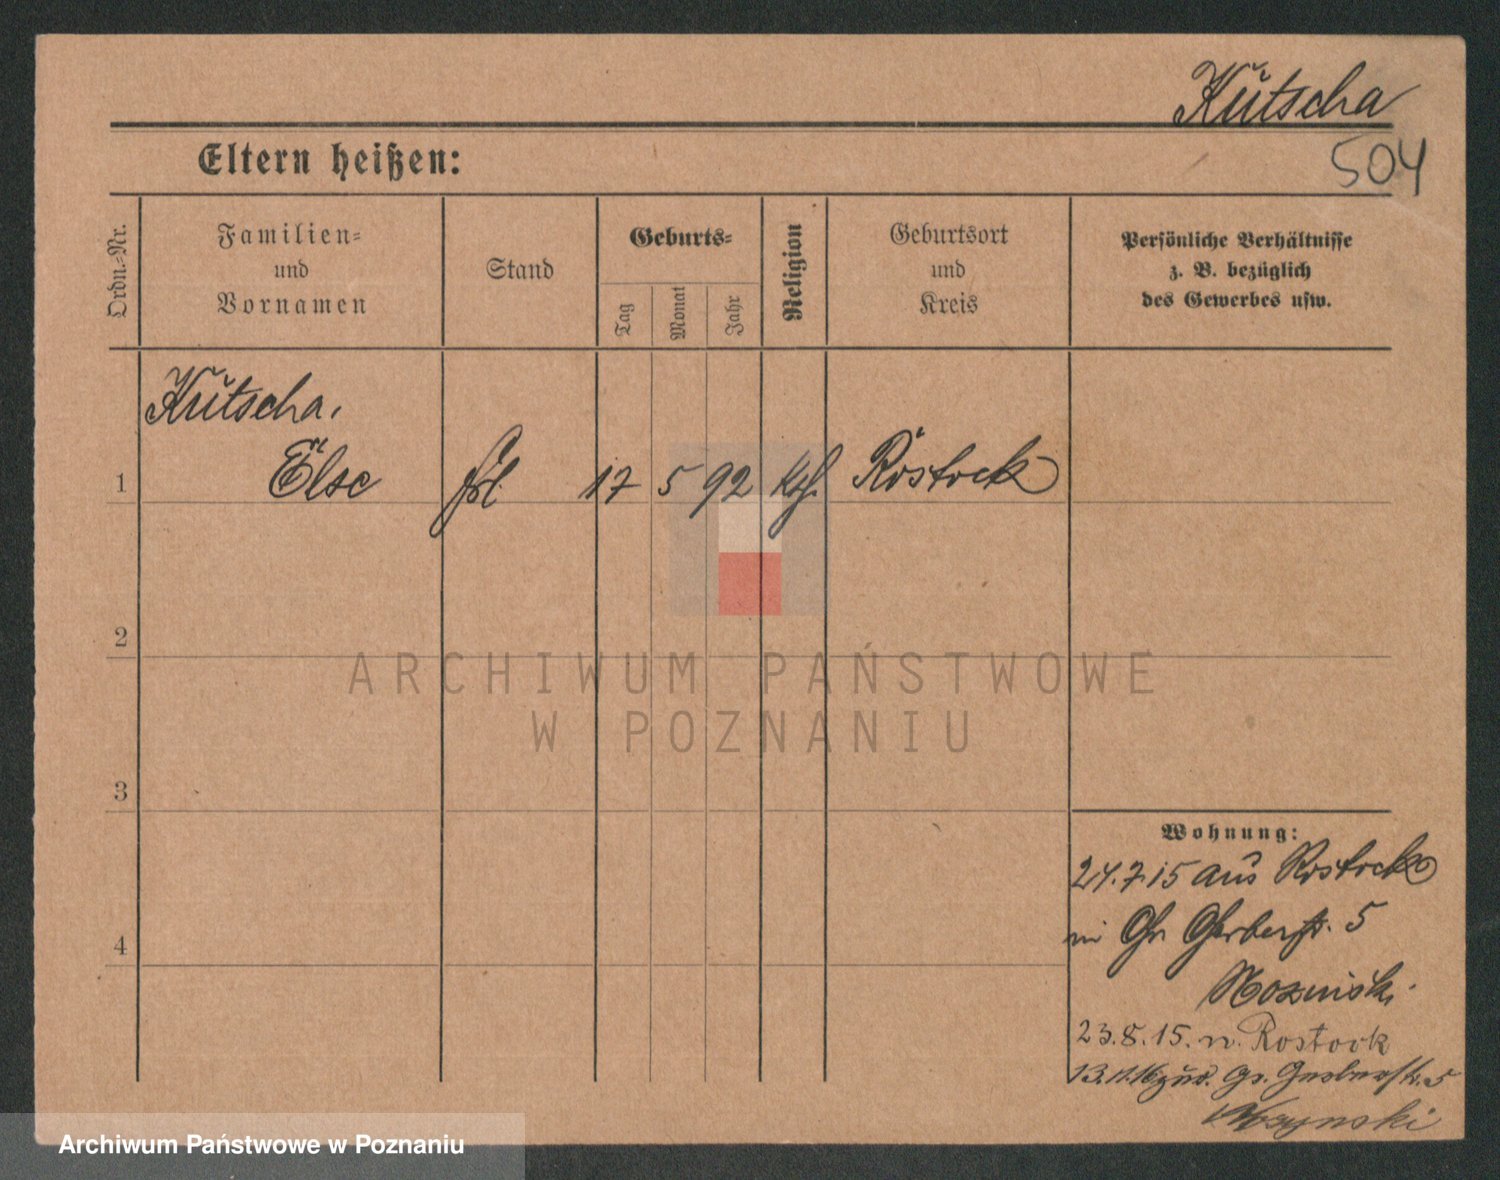 Kutscha
504
Eltern heißen:
Ordn.-Nr.
Familien-
und
Vornamen
Stand
Geburts-
Tag
Monat
Jahr
Religion
Geburtsort
und
Kreis
Persönliche Verhältnisse
z. B. bezüglich
des Gewerbes usw.
Kutscha,
1 Else frl. 17 5 92 kth. Rostock
2
3
4
Wohnung:
24.7.15 aus Rostock
in Gr Gerberstr. 5
23.8.15. n. Rostock
13.11.16 zur. Gr. Gerberstr. 5
ARCHIWUM PAŃSTWOWE
W POZNANIU
Archiwum Państwowe w Poznaniu